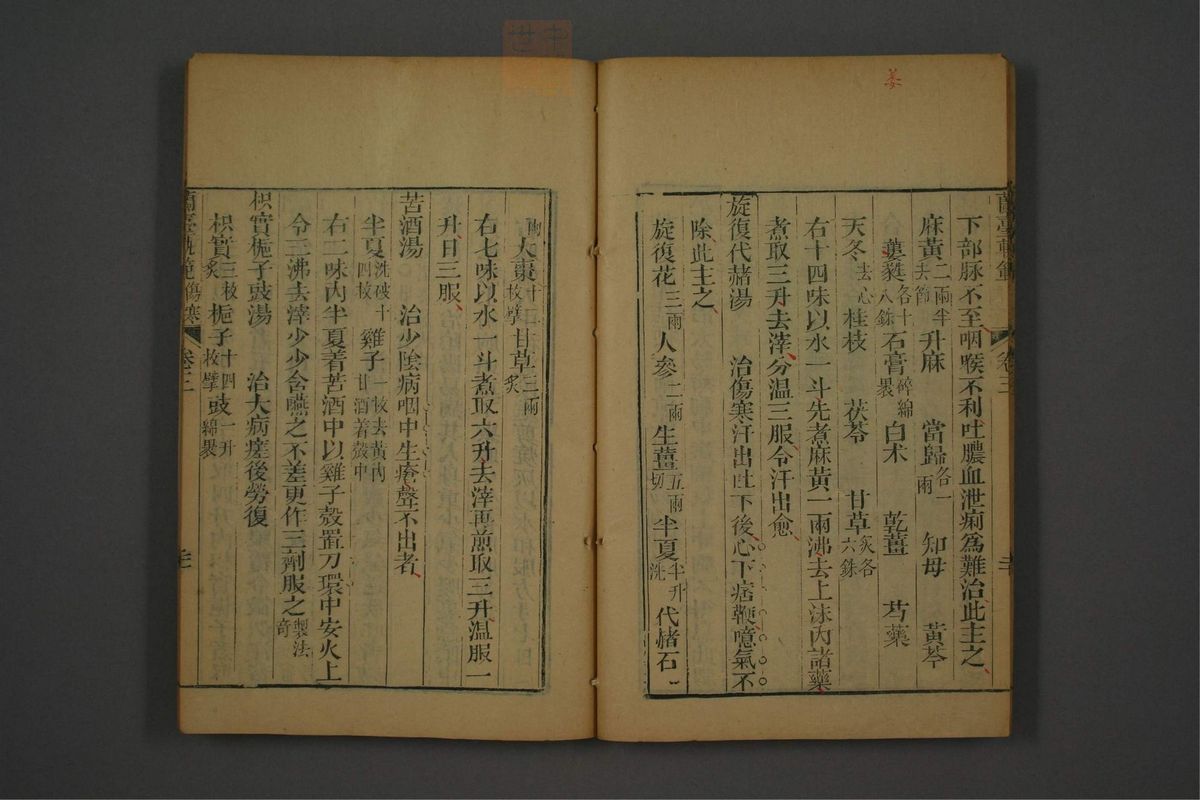 下部脉不至咽喉不利吐膿血泄痢為難治此主之
麻黃二兩半去節 升麻 當歸各一兩 知母 黃芩
萎蕤各十八銖 石膏碎綿裹 白术 乾薑 芍藥
天冬去心 桂枝 茯苓 甘草炙各六銖
右十四味以水一斗先煮麻黃一兩沸去上沫內諸藥
煮取三升去滓分温三服令汗出愈
旋復代赭湯 治傷寒汗出吐下後心下痞鞕噫氣不
除此主之
旋復花三兩 人參二兩 生薑五兩切 半夏半升洗 代赭石一
兩 大棗十二枚擘 甘草三兩炙
右七味以水一斗煮取六升去滓再煎取三升温服一
升日三服
苦酒湯 治少陰病咽中生瘡聲不出者
半夏洗破十四枚 雞子一枚去黃內苦酒着殼中
右二味內半夏着苦酒中以雞子殼置刀環中安火上
令三沸去滓少少含嚥之不差更作三劑服之製法奇
枳實梔子豉湯 治大病瘥後勞復
枳實三枚炙 梔子十四枚擘 豉一升綿裹
蘭臺軌範傷寒 卷三
姜